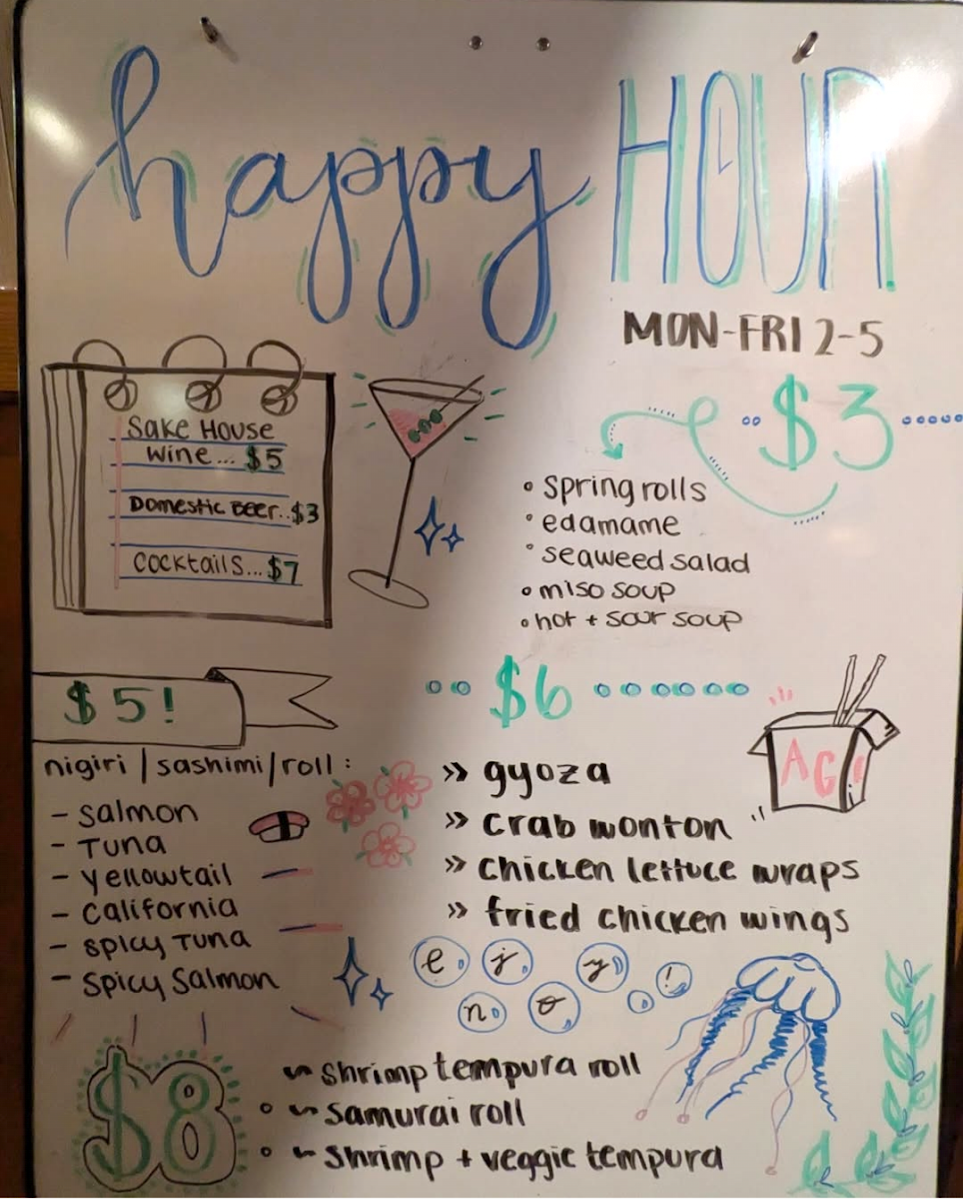 happy HOUR
MON-FRI 2-5
Sake House
Wine... $5
Domestic Beer.. $3
Cocktails... $7
$3
• spring rolls
• edamame
• seaweed salad
• miso soup
• hot + sour soup
$5!
nigiri / sashimi / roll :
- Salmon
- Tuna
- Yellowtail
- California
- Spicy Tuna
- Spicy Salmon
$6
» gyoza
» crab wonton
» chicken lettuce wraps
» fried chicken wings
AG
enjoy!
$8
~ shrimp tempura roll
~ samurai roll
~ shrimp + veggie tempura